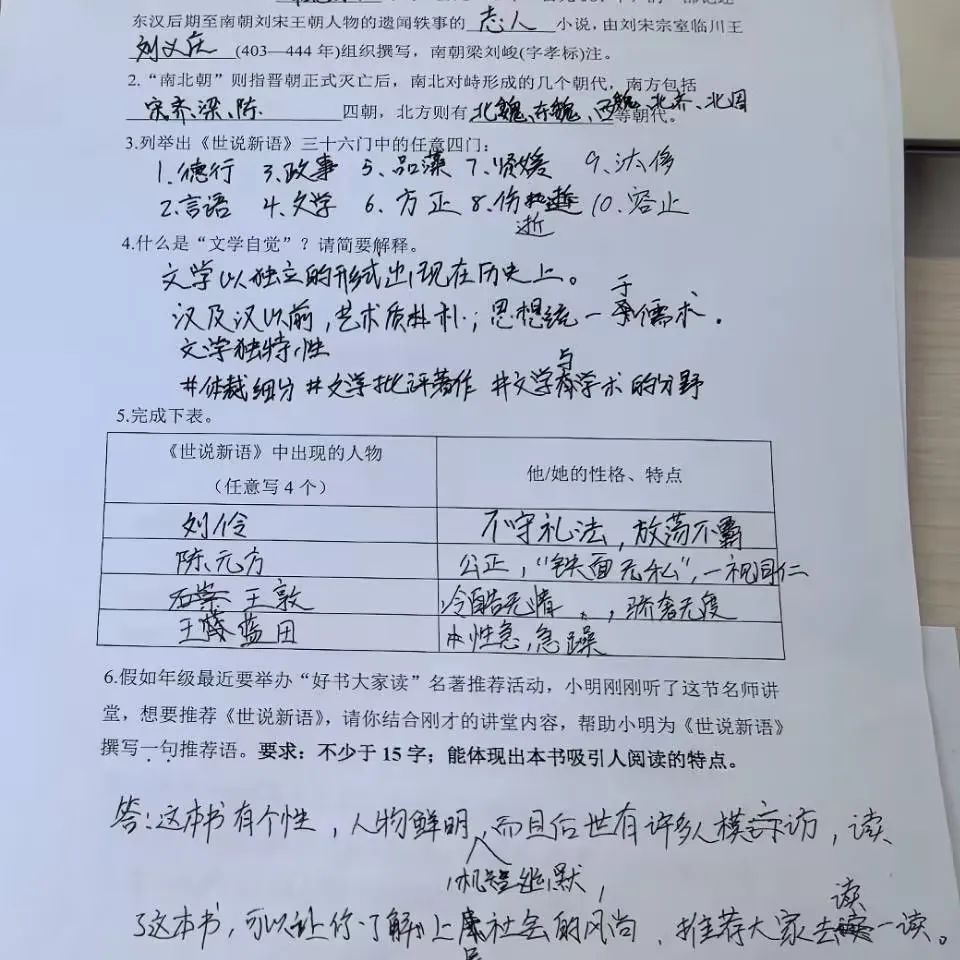 东汉后期至南朝刘宋王朝人物的遗闻轶事的 志人 小说，由刘宋宗室临川王
刘义庆 (403—444 年)组织撰写，南朝梁刘峻(字孝标)注。
2.“南北朝”则指晋朝正式灭亡后，南北对峙形成的几个朝代，南方包括
宋、齐、梁、陈 四朝，北方则有 北魏、东魏、西魏、北齐、北周 等朝代。
3.列举出《世说新语》三十六门中的任意四门：
1.德行 3.政事 5.品藻 7.贤媛 9.汰侈
2.言语 4.文学 6.方正 8.伤逝 10.容止
逝
4.什么是“文学自觉”？请简要解释。
文学以独立的形式出现在历史上。
汉及汉以前，艺术质朴；思想统一于儒术。
文学独特性
#体裁细分 #文学批评著作 #文学与学术的分野
5.完成下表。
《世说新语》中出现的人物
（任意写 4 个）
他/她的性格、特点
刘伶 不守礼法，放荡不羁
陈元方 公正，“铁面无私”，一视同仁
石崇 王敦 冷酷无情，骄奢无度
王蓝田 本性急，急躁
6.假如年级最近要举办“好书大家读”名著推荐活动，小明刚刚听了这节名师讲
堂，想要推荐《世说新语》，请你结合刚才的讲堂内容，帮助小明为《世说新语》
撰写一句推荐语。要求：不少于 15 字；能体现出本书吸引人阅读的特点。
答：这本书有个性，人物鲜明，而且后世有许多人模访，读
机智幽默，
了这本书，可以让你了解上层社会的风尚、推荐大家去读一读。